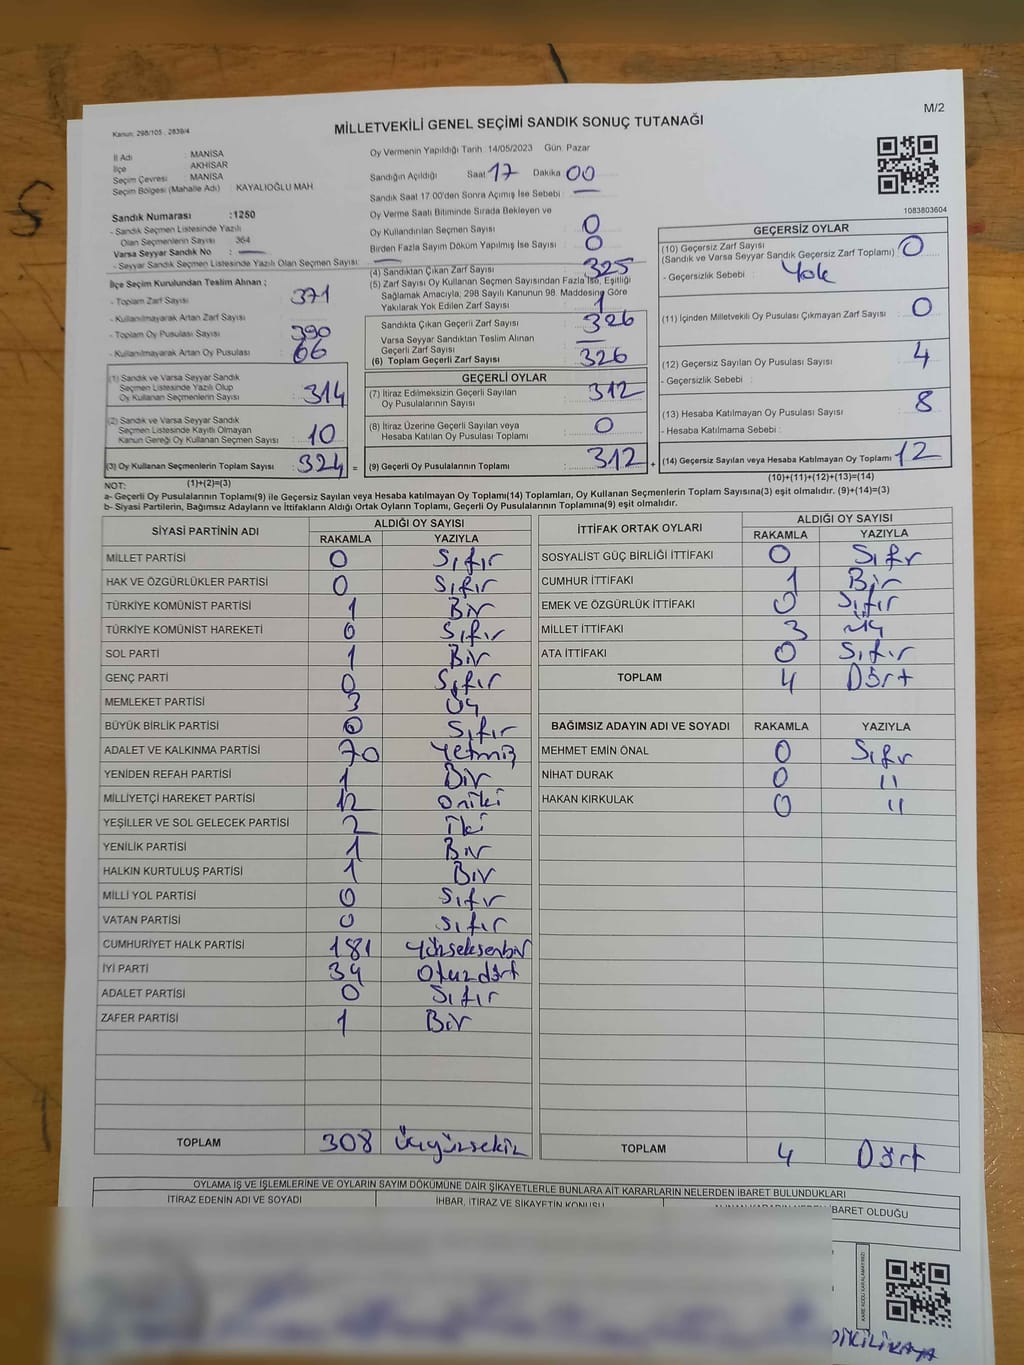 M/2
Kanun: 298/105 , 2839/4
MİLLETVEKİLİ GENEL SEÇİMİ SANDIK SONUÇ TUTANAĞI
İl Adı : MANİSA
İlçe : AKHİSAR
Seçim Çevresi : MANİSA
Seçim Bölgesi (Mahalle Adı) : KAYALIOĞLU MAH
Sandık Numarası : 1250
- Sandık Seçmen Listesinde Yazılı
Olan Seçmenlerin Sayısı : 364
Varsa Seyyar Sandık No : —
- Seyyar Sandık Seçmen Listesinde Yazılı Olan Seçmen Sayısı: —
Oy Vermenin Yapıldığı Tarih : 14/05/2023 Gün: Pazar
Sandığın Açıldığı Saat 17 Dakika 00
Sandık Saat 17.00'den Sonra Açımış İse Sebebi : —
Oy Verme Saati Bitiminde Sırada Bekleyen ve
Oy Kullandırılan Seçmen Sayısı : 0
Birden Fazla Sayım Döküm Yapılmış İse Sayısı : 0
1083803604
İlçe Seçim Kurulundan Teslim Alınan ;
- Toplam Zarf Sayısı : 371
- Kullanılmayarak Artan Zarf Sayısı :
- Toplam Oy Pusulası Sayısı : 390
- Kullanılmayarak Artan Oy Pusulası : 66
(1) Sandık ve Varsa Seyyar Sandık
Seçmen Listesinde Yazılı Olup
Oy Kullanan Seçmenlerin Sayısı : 314
(2) Sandık ve Varsa Seyyar Sandık
Seçmen Listesinde Kayıtlı Olmayan
Kanun Gereği Oy Kullanan Seçmen Sayısı : 10
(3) Oy Kullanan Seçmenlerin Toplam Sayısı : 324 =
(4) Sandıktan Çıkan Zarf Sayısı : 325
(5) Zarf Sayısı Oy Kullanan Seçmen Sayısından Fazla İse, Eşitliği
Sağlamak Amacıyla, 298 Sayılı Kanunun 98. Maddesine Göre
Yakılarak Yok Edilen Zarf Sayısı : 1
Sandıkta Çıkan Geçerli Zarf Sayısı : 326
Varsa Seyyar Sandıktan Teslim Alınan
Geçerli Zarf Sayısı : —
(6) Toplam Geçerli Zarf Sayısı : 326
GEÇERLİ OYLAR
(7) İtiraz Edilmeksizin Geçerli Sayılan
Oy Pusulalarının Sayısı : 312
(8) İtiraz Üzerine Geçerli Sayılan veya
Hesaba Katılan Oy Pusulası Toplamı : 0
(9) Geçerli Oy Pusulalarının Toplamı : 312 +
GEÇERSİZ OYLAR
(10) Geçersiz Zarf Sayısı
(Sandık ve Varsa Seyyar Sandık Geçersiz Zarf Toplamı) : 0
- Geçersizlik Sebebi : Yok
(11) İçinden Milletvekili Oy Pusulası Çıkmayan Zarf Sayısı : 0
(12) Geçersiz Sayılan Oy Pusulası Sayısı : 4
- Geçersizlik Sebebi :
(13) Hesaba Katılmayan Oy Pusulası Sayısı : 8
- Hesaba Katılmama Sebebi :
(14) Geçersiz Sayılan veya Hesaba Katılmayan Oy Toplamı : 12
NOT: (1)+(2)=(3) (10)+(11)+(12)+(13)=(14)
a- Geçerli Oy Pusulalarının Toplamı(9) ile Geçersiz Sayılan veya Hesaba katılmayan Oy Toplamı(14) Toplamları, Oy Kullanan Seçmenlerin Toplam Sayısına(3) eşit olmalıdır. (9)+(14)=(3)
b- Siyasi Partilerin, Bağımsız Adayların ve İttifakların Aldığı Ortak Oyların Toplamı, Geçerli Oy Pusulalarının Toplamına(9) eşit olmalıdır.
SİYASİ PARTİNİN ADI ALDIĞI OY SAYISI
RAKAMLA YAZIYLA
MİLLET PARTİSİ 0 Sıfır
HAK VE ÖZGÜRLÜKLER PARTİSİ 0 Sıfır
TÜRKİYE KOMÜNİST PARTİSİ 1 Bir
TÜRKİYE KOMÜNİST HAREKETİ 0 Sıfır
SOL PARTİ 1 Bir
GENÇ PARTİ 0 Sıfır
MEMLEKET PARTİSİ 3 Üç
BÜYÜK BİRLİK PARTİSİ 0 Sıfır
ADALET VE KALKINMA PARTİSİ 70 Yetmiş
YENİDEN REFAH PARTİSİ 1 Bir
MİLLİYETÇİ HAREKET PARTİSİ 12 Oniki
YEŞİLLER VE SOL GELECEK PARTİSİ 2 İki
YENİLİK PARTİSİ 1 Bir
HALKIN KURTULUŞ PARTİSİ 1 Bir
MİLLİ YOL PARTİSİ 0 Sıfır
VATAN PARTİSİ 0 Sıfır
CUMHURİYET HALK PARTİSİ 181 Yüzseksenbir
İYİ PARTİ 34 Otuzdört
ADALET PARTİSİ 0 Sıfır
ZAFER PARTİSİ 1 Bir
TOPLAM 308 Üçyüzsekiz
İTTİFAK ORTAK OYLARI ALDIĞI OY SAYISI
RAKAMLA YAZIYLA
SOSYALİST GÜÇ BİRLİĞİ İTTİFAKI 0 Sıfır
CUMHUR İTTİFAKI 1 Bir
EMEK VE ÖZGÜRLÜK İTTİFAKI 0 Sıfır
MİLLET İTTİFAKI 3 Üç
ATA İTTİFAKI 0 Sıfır
TOPLAM 4 Dört
BAĞIMSIZ ADAYIN ADI VE SOYADI RAKAMLA YAZIYLA
MEHMET EMİN ÖNAL 0 Sıfır
NİHAT DURAK 0 "
HAKAN KIRKULAK 0 "
TOPLAM 4 Dört
OYLAMA İŞ VE İŞLEMLERİNE VE OYLARIN SAYIM DÖKÜMÜNE DAİR ŞİKAYETLERLE BUNLARA AİT KARARLARIN NELERDEN İBARET BULUNDUKLARI
İTİRAZ EDENİN ADI VE SOYADI İHBAR, İTİRAZ VE ŞİKAYETİN KONUSU İBARET OLDUĞU